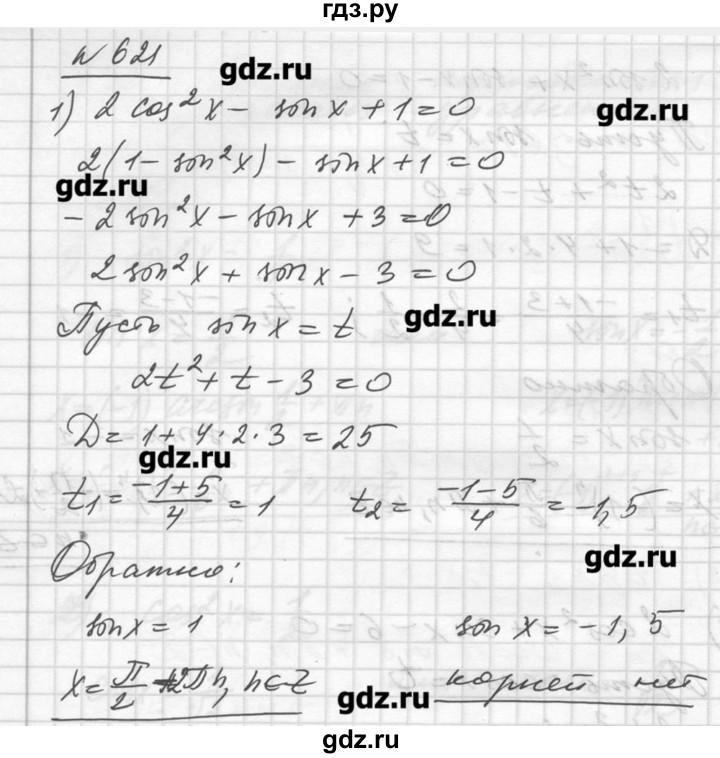 гдз.ру
№ 621
gdz.ru
1) 2 cos²x - sin x + 1 = 0
gdz.ru
2(1 - sin²x) - sin x + 1 = 0
gdz.ru
- 2 sin²x - sin x + 3 = 0
2 sin²x + sin x - 3 = 0
Пусть sin x = t
gdz.ru
2t² + t - 3 = 0
D = 1 + 4·2·3 = 25
gdz.ru
t₁ = (-1+5)/4 = 1 t₂ = (-1-5)/4 = -1,5
Обратно:
gdz.ru
sin x = 1 sin x = -1,5
x = π/2 + 2πn, n∈Z корней нет
gdz.ru
gdz.ru